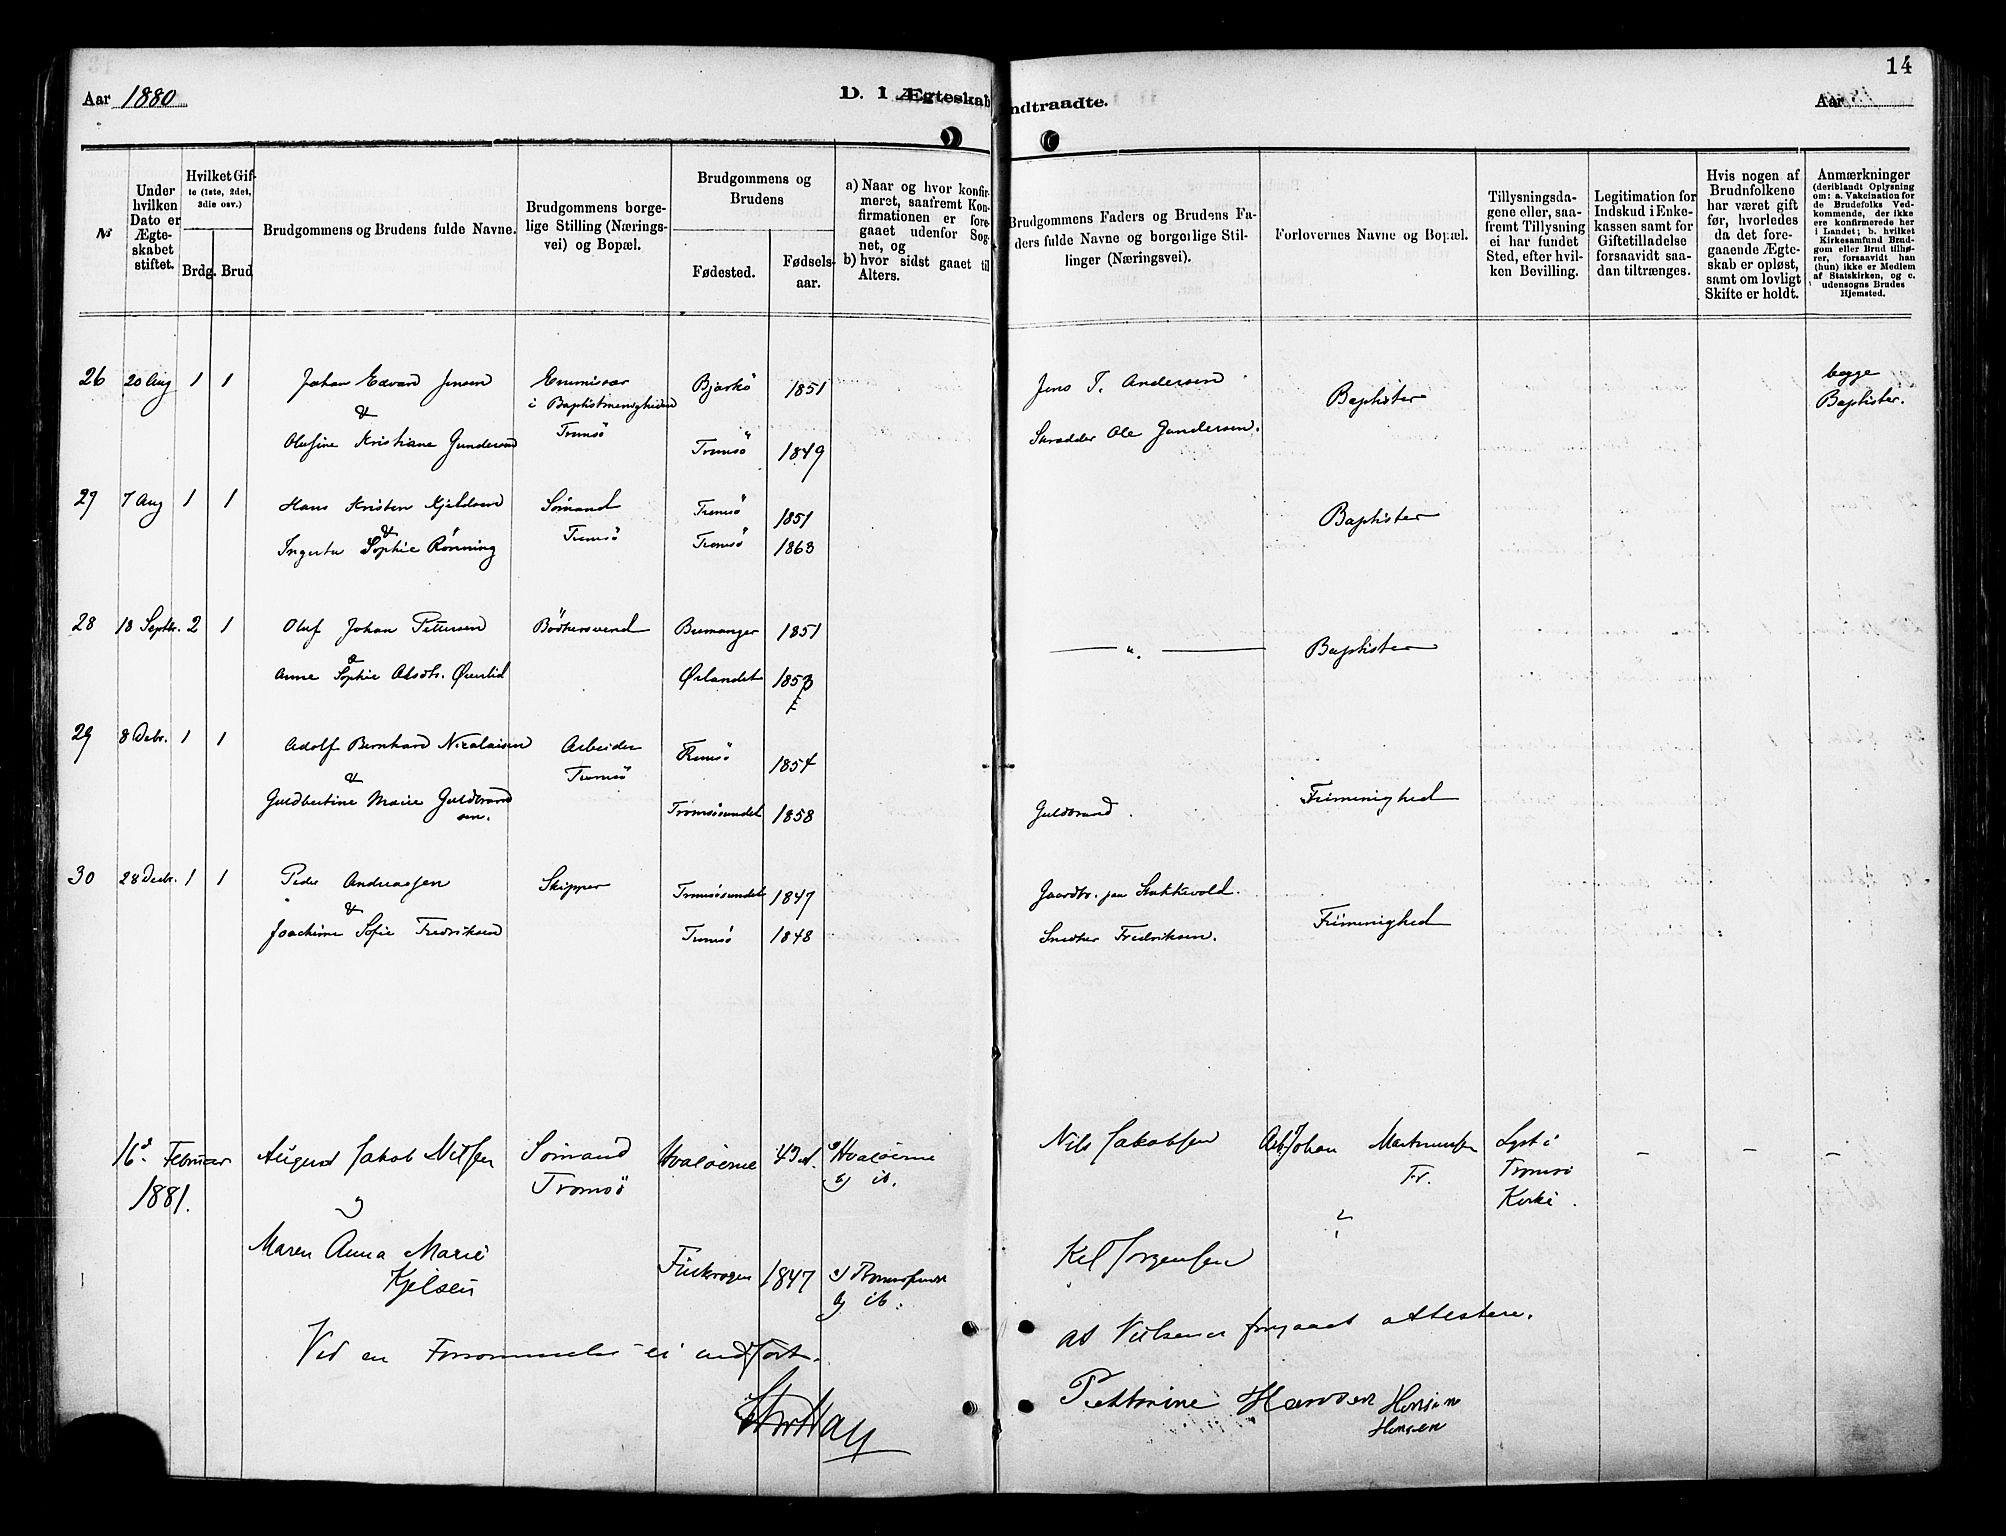 14
Aar 1880
D. 1 Ægteskab
ndtraadte.
Aar
№
Under hvilken Dato er Ægteskabet stiftet.
Hvilket Gifte (1ste, 2det, 3die osv.)
Brdg. Brud
Brudgommens og Brudens fulde Navne.
Brudgommens borgelige Stilling (Næringsvei) og Bopæl.
Brudgommens og Brudens
Fødested.
Fødselsaar.
a) Naar og hvor konfirmeret, saafremt Konfirmationen er foregaaet udenfor Sognet, og
b) hvor sidst gaaet til Alters.
Brudgommens Faders og Brudens Faders fulde Navne og borgerlige Stillinger (Næringsvei).
Forlovernes Navne og Bopæl.
Tillysningsdagene eller, saafremt Tillysning ei har fundet Sted, efter hvilken Bevilling.
Legitimation for Indskud i Enkekassen samt for Giftetilladelse forsaavidt saadan tiltrænges.
Hvis nogen af Brudnfolkene har været gift før, hvorledes da det foregaaende Ægteskab er opløst, samt om lovligt Skifte er holdt.
Anmærkninger
(deriblandt Oplysning om: a. Vakcination for de Brudefolks Vedkommende, der ikke ere konfirmerede her i Landet; b. hvilket Kirkesamfund Brudgom eller Brud tilhører, forsaavidt han (hun) ikke er Medlem af Statskirken, og c. udensogns Brudes Hjemsted.
26 20 Aug 1 1 Johan Edvard Jensen Emmisær Bjarkö 1851 Jens T. Andersen Baptister begge
& i Baptistmenigheden Baptister.
Olufine Kristiane Gundersen Tromsö Tromsö 1849 Skrædder Ole Gundersen.
27 7 Aug 1 1 Hans Kristen Kjeldsen Sömand Tromsö 1851 Baptister
&
Ingerta Sophie Rönning Tromsö Tromsö 1863
28 18 Septbr. 2 1 Oluf Johan Pettersen Bödkersvend Bremanger 1851 — " — Baptister
&
Anne Sophie Ørlandet 1853
29 8 Debr. 1 1 Adolf Bernhard Nicolaisen Arbeider Tromsö 1854
& Tromsö Frimenighed
Guldbertine Marie Guldbrandsen. Tromsösundet 1858 Guldbrand.
30 28 Decbr. 1 1 Peder Andreassen Skipper Tromsösundet 1847 Gaardbr. paa Stakkevold.
& Frimenighed
Joachime Sofie Fredriksen Tromsö 1848 Snedker Fredriksen.
16d. Februar August Jakob Nilssen Sömand Hvalöerne a) Hvalöerne Nils Jakobsen Arb. Johan Martinussen Lyst i — — —
1881. Tromsö b) ib. Tr. Tromsö
Kirke.
Maren Anna Marie Kjelsen Finkrogen 1847 a) Tromsösundet Kel Jørgensen
b) ib.
Ved en Forsømmelse ei indført.
at Vielsen er foregaaet attestere.
Petterine Hansen Hansine
Hansen